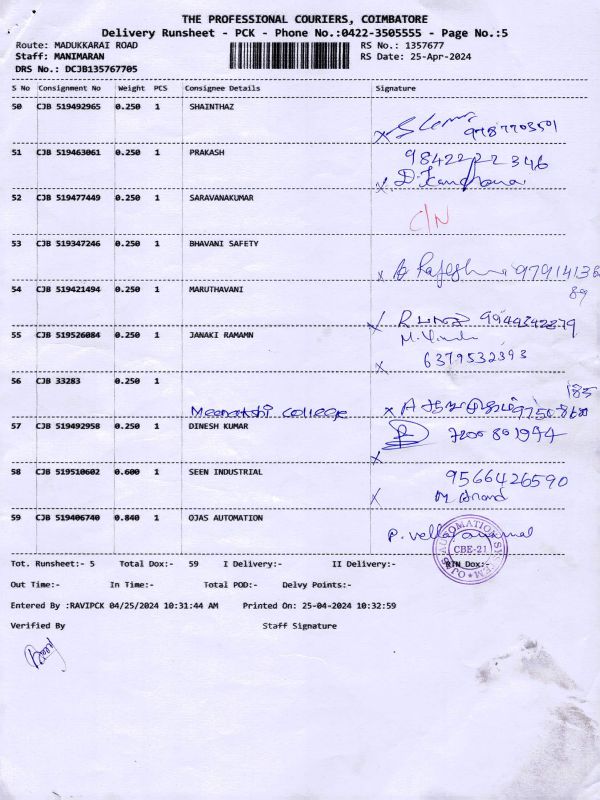 THE PROFESSIONAL COURIERS, COIMBATORE
Delivery Runsheet - PCK - Phone No.:0422-3505555 - Page No.:5
Route: MADUKKARAI ROAD RS No.: 1357677
Staff: MANIMARAN RS Date: 25-Apr-2024
DRS No.: DCJB135767705
S No Consignment No Weight PCS Consignee Details Signature
50 CJB 519492965 0.250 1 SHAINTHAZ
9787703501
51 CJB 519463061 0.250 1 PRAKASH
9842222346
52 CJB 519477449 0.250 1 SARAVANAKUMAR
C/N
53 CJB 519347246 0.250 1 BHAVANI SAFETY
97914136
89
54 CJB 519421494 0.250 1 MARUTHAVANI
9944342879
55 CJB 519526084 0.250 1 JANAKI RAMAMN
6379532393
56 CJB 33283 0.250 1
185
Meenakshi college
57 CJB 519492958 0.250 1 DINESH KUMAR
7200801994
58 CJB 519510602 0.600 1 SEEN INDUSTRIAL
9566426590
M Anand
59 CJB 519406740 0.840 1 OJAS AUTOMATION
OJAS AUTOMATION SYSTEM
CBE-21
Tot. Runsheet:- 5 Total Dox:- 59 I Delivery:- II Delivery:- RTN Dox:-
Out Time:- In Time:- Total POD:- Delvy Points:-
Entered By :RAVIPCK 04/25/2024 10:31:44 AM Printed On: 25-04-2024 10:32:59
Verified By Staff Signature